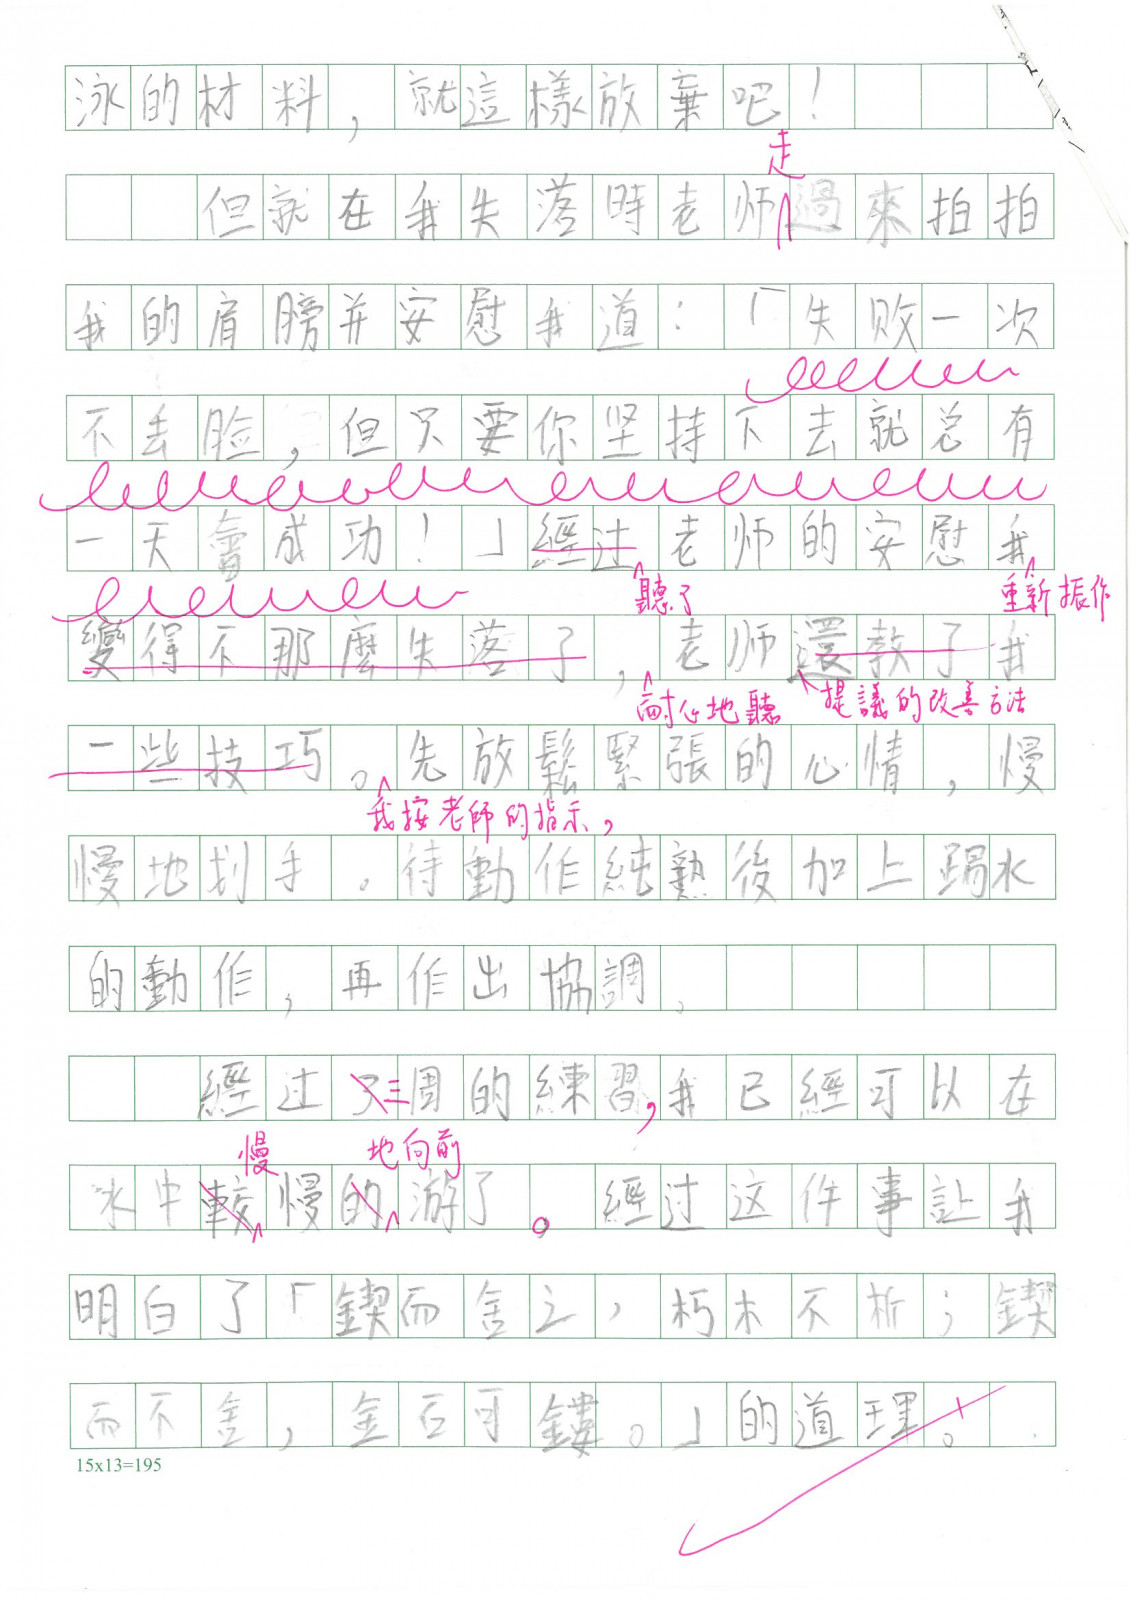 泳的材料，就這樣放棄吧！
走
但就在我失落時老师過來拍拍
我的肩膀并安慰我道：「失败一次
不丢脸，但只要你坚持下去就总有
一天會成功！」經过老师的安慰我
聽了 重新振作
變得不那麼失落了，老师還教了我
耐心地聽 提議的改善方法
一些技巧。先放鬆緊張的心情，慢
我按老師的指示，
慢地划手。待動作純熟後加上踢水
的動作，再作出協調。
經过了三周的練習，我已經可以在
慢 地向前
水中較慢的游了。經过这件事让我
明白了「鍥而舍之，朽木不析；鍥
而不舍，金石可鏤。」的道理。
15x13=195